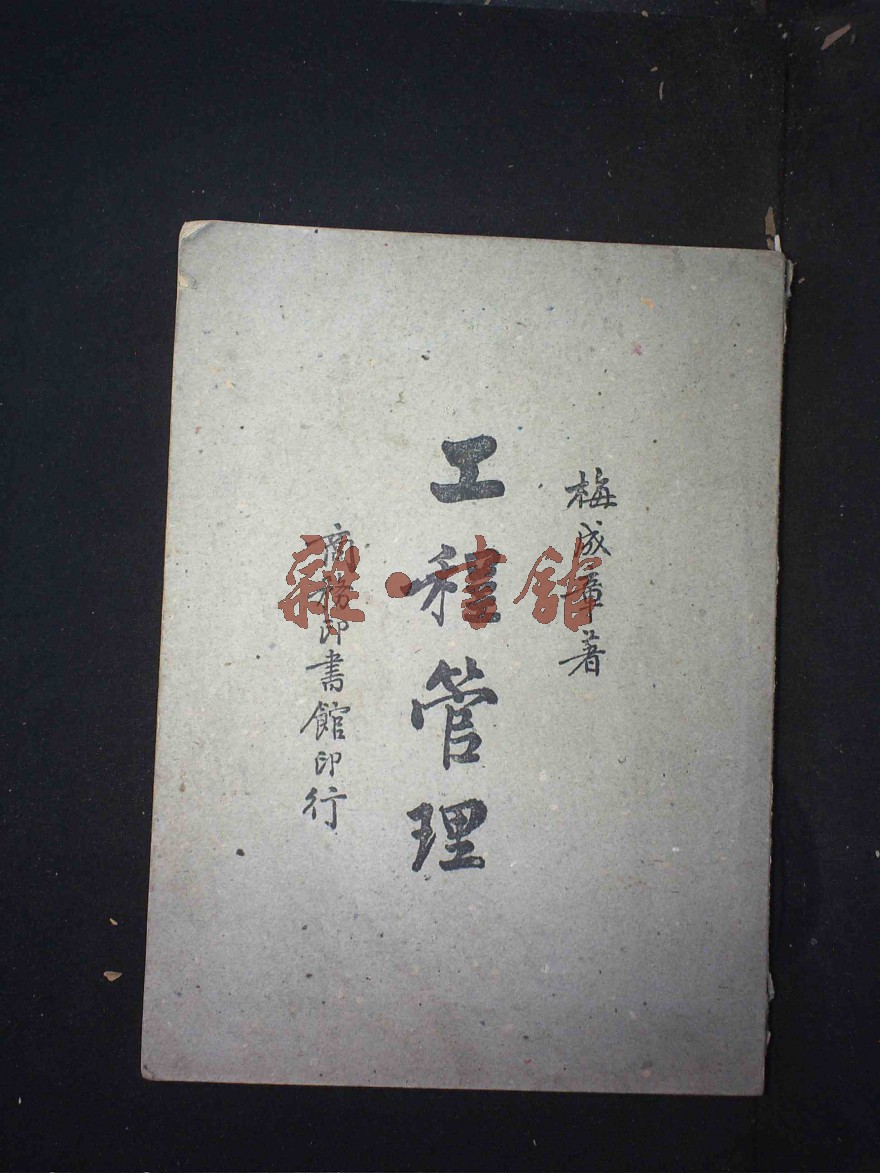 梅成章著
工程管理
商務印書館印行
雜·書館